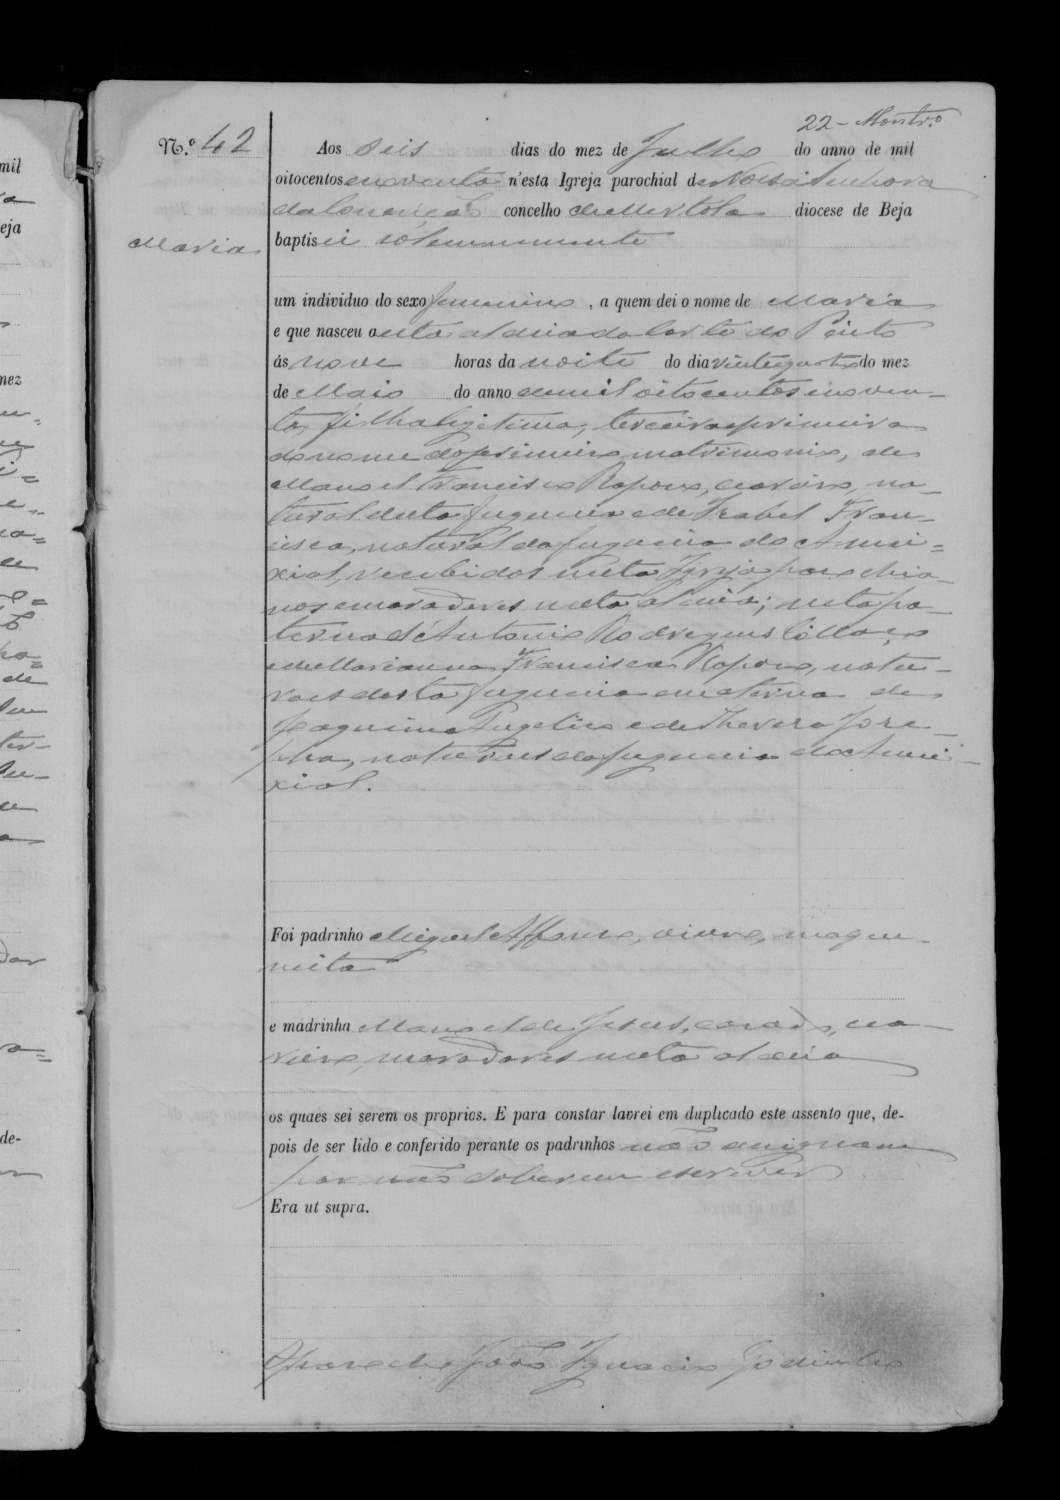 22 - Montr.º
N.º 42
Aos seis dias do mez de Julho do anno de mil
oitocentos e noventa n'esta Igreja parochial de Nossa Senhora
da Conceição concelho de Mertola diocese de Beja
Maria
baptisei solemnemente
um individuo do sexo femenino, a quem dei o nome de Maria
e que nasceu n'esta aldeia da Corte do Pinto
ás nove horas da noite do dia vinte quatro do mez
de Maio do anno de mil oitocentos e noven-
ta, filha legitima, terceira e primeira
do nome do primeiro matrimonio, de
Manoel Francisco Raposo, ceareiro, na-
tural desta freguesia e de Izabel Fran-
cisca, natural da freguesia do Amei-
xial, recebidos nesta Igreja parochia-
nos e moradores nesta aldeia; neta pa-
terna d'Antonio Rodrigues
e de Marianna Francisca Raposo, natu-
raes desta freguesia e materna de
Joaquim Angelico e de Thereza Jose-
pha, naturaes da freguesia do Amei-
xial.
Foi padrinho Miguel Affonso, viuvo, maque-
nista
e madrinha Manoel de Jesus, casado, cea-
reiro, moradores nesta aldeia
os quaes sei serem os proprios. E para constar lavrei em duplicado este assento que, de-
pois de ser lido e conferido perante os padrinhos não assignam
por não saberem escrever
Era ut supra.
O parocho João Ignacio Godinho